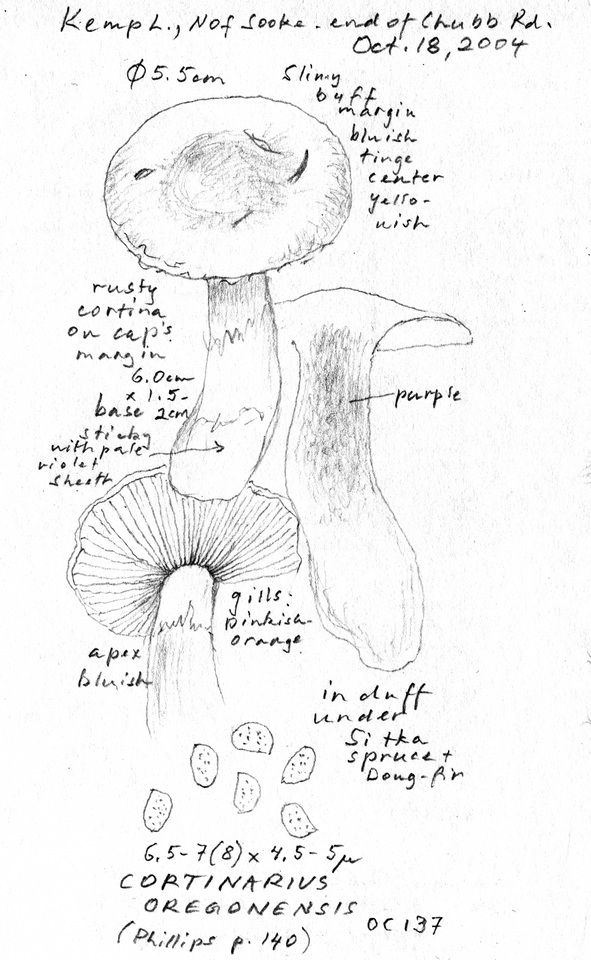 Kemp L., N of Sooke. end of Chubb Rd.
Oct. 18, 2004
Ø 5.5cm
Slimy
buff
margin
bluish
tinge
center
yello-
wish
rusty
cortina
on cap's
margin
6.0cm
x 1.5-
base 2cm
sticky
with pale
violet
sheath
purple
gills:
pinkish-
orange
apex
bluish
in duff
under
Sitka
spruce +
Doug-fir
6.5-7(8) x 4.5-5µ
CORTINARIUS
OREGONENSIS
(Phillips p. 140)
OC137